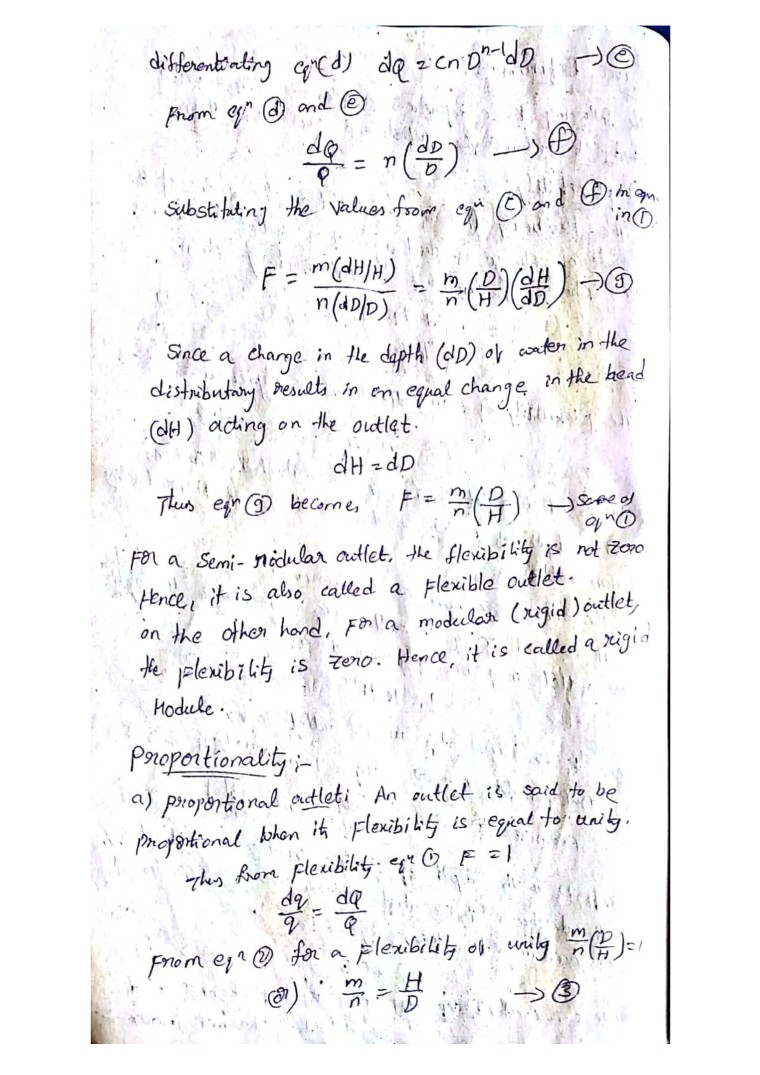 differentiating eqⁿ(d) dQ = CnDⁿ⁻¹dD → ⓔ
From eqⁿ ⓓ and ⓔ
dQ/Q = n(dD/D) → ⓕ
Substituting the values from eqⁿ ⓒ and ⓕ in eqn
in ①
F = m(dH/H) / n(dD/D) = m/n (D/H)(dH/dD) → ⓖ
Since a change in the depth (dD) of water in the
distributary results in an equal change in the head
(dH) acting on the outlet.
dH = dD
Thus eqⁿ ⓖ becomes F = m/n (D/H) → Same of
eqⁿ ①
For a Semi-modular outlet, the flexibility is not zero
Hence, it is also called a Flexible outlet.
on the other hand, For a modular (rigid) outlet,
the flexibility is zero. Hence, it is called a rigid
Module.
Proportionality :-
a) proportional outlet: An outlet is said to be
proportional when its Flexibility is equal to unity.
Thus from flexibility eqⁿ ① F = 1
dq/q = dQ/Q
From eqⁿ ② for a Flexibility of unity m/n (D/H) = 1
(or) m/n = H/D → ③